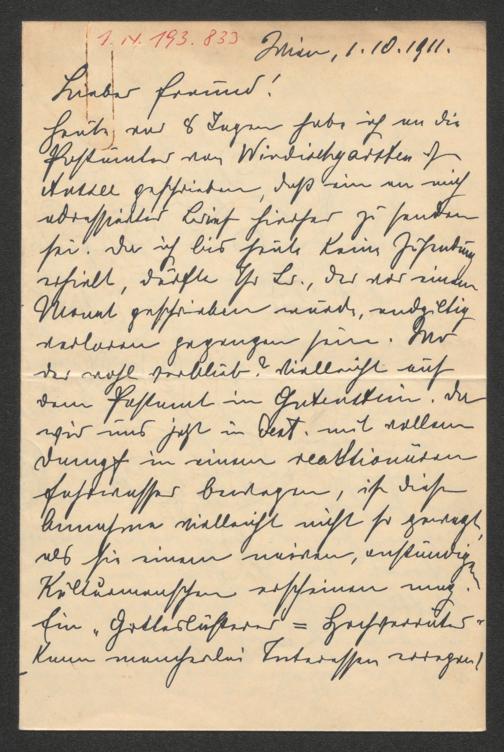 I. N. 193.833
Wien, 1.10.1911.
Lieber Freund!
Heute vor 8 Tagen habe ich an die
Postämter von Windischgarsten &
Aussee geschrieben, daß ein an mich
adressierter Brief hierher zu senden
sei. Da ich bis heute keine Zusendung
erhielt, dürfte Ihr Br., der vor einem
Monat geschrieben wurde, endgiltig
verloren gegangen sein. Wo
der wohl verblieb? Vielleicht auf
dem Postamt in Gutenstein. Da
wir uns jetzt in Oest. mit vollem
Dampf in einem reaktionären
Fahrwasser bewegen, ist diese
Annahme vielleicht nicht so gewagt,
als sie einem naiven, anständigen
Kulturmenschen erscheinen mag.
Ein „Gotteslästerer = Hochverräter"
kann mancherlei Interessen erregen!